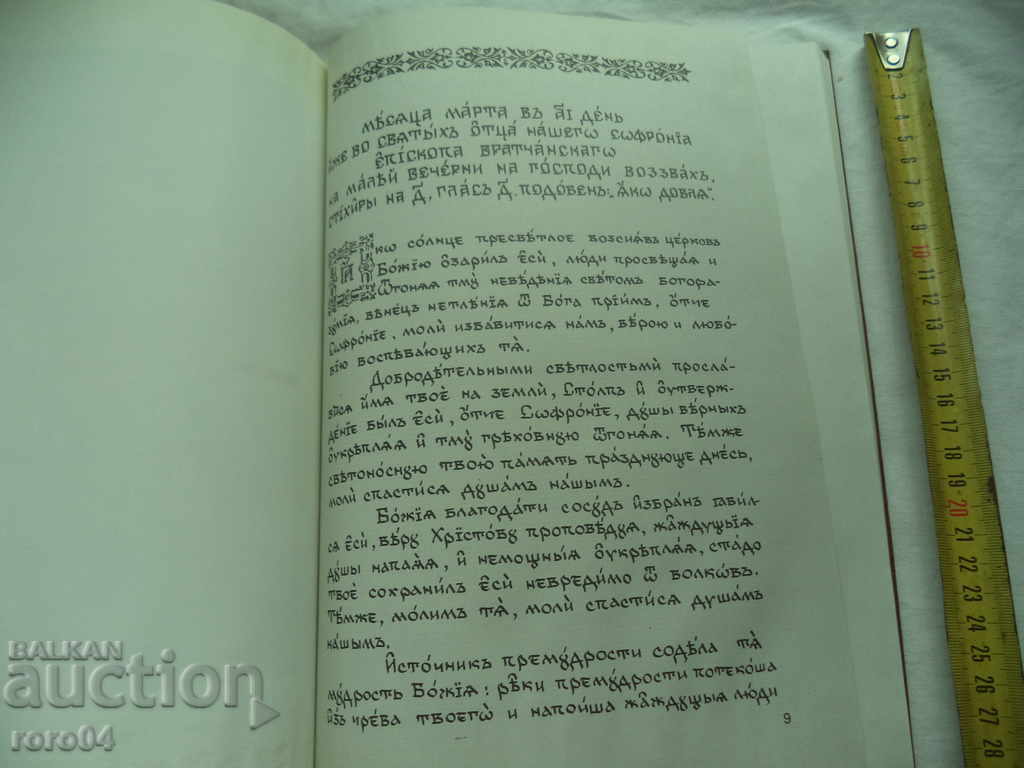 МѢ́СѦЦА МА́РТА ВЪ А҃І ДЕ́НЬ
И́ЖЕ ВО СВѦТЫ́ХЪ Ѻ҆ТЦА̀ НА́ШЕГѠ СѠФРО́НІА
Е҆ПІ́СКОПА ВРАТЧА́НСКАГѠ
НА МА́ЛѢЙ ВЕЧЕ́РНИ НА ГО́СПОДИ ВОЗЗВА́ХЪ,
СТІХИ̑РЫ НА Д҃, ГЛА́СЪ Д҃. ПОДО́БЕНЪ: „Ꙗ҆́КѠ ДО́БЛѦ“.
Ꙗ҆́кѡ со́лнце пресвѣ́тлое возсіѧ́въ це́рковь
Бо́жїю ѡ҆зари́лъ є҆сѝ, лю́ди просвѣща́ѧ и
ѿгонѧ́ѧ тмꙋ̀ невѣ́дѣнїѧ свѣ́томъ богора-
зꙋ́мїѧ, вѣне́цъ нетлѣ́нїѧ ѿ Бо́га прїи́мъ, ѻ҆́тче
Сѡфро́нїе, молѝ изба́витисѧ на́мъ, вѣ́рою и любо́-
вїю воспѣва́ющихъ тѧ̀.
Добродѣ́тельными свѣ́тлостьмѝ просла́-
висѧ и҆́мѧ твоѐ на землѝ, сто́лпъ и҆ ѹ҆твержд-
де́нїе бы́лъ є҆сѝ, ѻ҆́тче Сѡфро́нїе, дꙋ́шы вѣ́рныхъ
ѹ҆крѣплѧ́ѧ и҆ тмꙋ̀ грѣхо́внꙋю ѿгонѧ́ѧ. Тѣ́мже
свѣтоно́снꙋю твою̀ па́мять пра́зднꙋюще дне́сь,
молѝ спасти́сѧ дꙋша́мъ на́шымъ.
Бо́жїѧ благода́ти сосꙋ́дъ и҆збра́нъ ꙗ҆ви́л-
сѧ є҆сѝ, вѣ́рꙋ Хрїсто́вꙋ проповѣ́дꙋѧ, жа́ждꙋщыѧ
дꙋ́шы напаѧ́ѧ, и҆ немощны́ѧ ѹ҆крѣплѧ́ѧ, ста́до
твоѐ сохрани́лъ є҆сѝ невреди́мо ѿ волкѡ́въ.
Тѣ́мже, мо́лимъ тѧ̀, молѝ спасти́сѧ дꙋша́мъ
на́шымъ.
И҆сто́чникъ премꙋ́дрости содѣ́ла тѧ̀
мꙋ́дрость Бо́жїѧ: рѣ́ки премꙋ́дрости потеко́ша
и҆зъ чре́ва твоегѡ̀ и напои́ша жа́ждꙋщыѧ лю́ди
9
2 3 4 5 6 7 8 9 10 11 12 13 14 15 16 17 18 19 20 21 22 23 24 25 26 27 28
BALKAN
auction
roro04